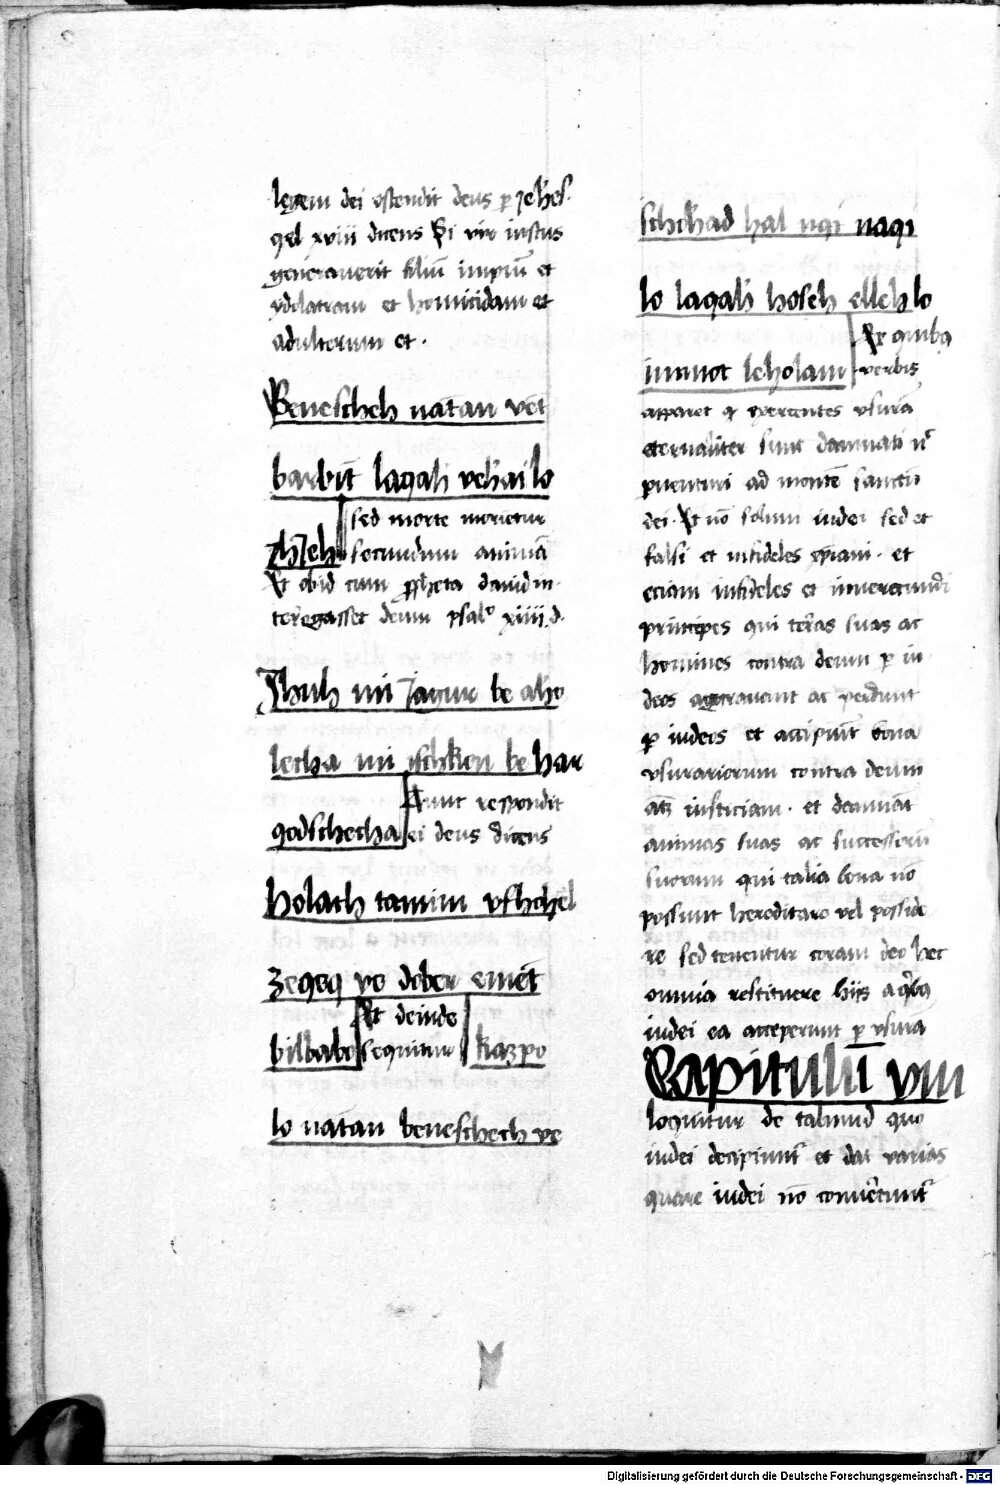 legem dei ostendit deus p Jehes
qel xviii dicens Si vir iustus
generauerit filiū impiū et
ydolatram et homicidam et
adulterum et ·
Benescheh natan vet
barbit laqah vehai lo
Jhieh sed morte morietur
secundum animā
Et obid cum ppheta dauid in
teregasset deum psal xiiii d·
Jhuh mi Jagur be aho
lecha mi ischkon be har
qodschecha Tunc respondit
ei deus dicens
holach tamim vfhohel
zedeq ve dober emet
bilbabo Et deinde
sequitur kazpo
lo natan beneschech ve
schchad hal nqi naqi
lo laqah hoseh elleh lo
immot leholam Ex quibq
verbis
apparet q exercentes vsurā
eternaliter sunt damnati n
puenturi ad montē sanctū
dei · Et nō solum iudei sed et
falsi et infideles xpiani · et
eciam infideles et inuerecundi
principes qui terras suas ac
homines contra deum p iu
deos aggrauant ac perdunt
p iudeos et accipiūt bona
vsurariorum contra deum
atq iusticiam · et damnāt
animas suas ac successorū
suorum qui talia bona nō
possunt hereditare vel posside
re sed tenentur coram deo hec
omnia restituere hijs a qbq
iudei ea acceperunt p vsurā
Capitulū viii
loquitur de talmud quo
iudei decipiunt et dat varias
quare iudei nō conuertunt
Digitalisierung gefördert durch die Deutsche Forschungsgemeinschaft - DFG